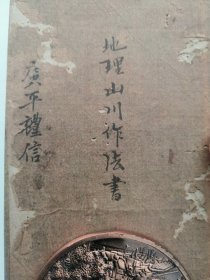 地理山川作法書
廣平禮信